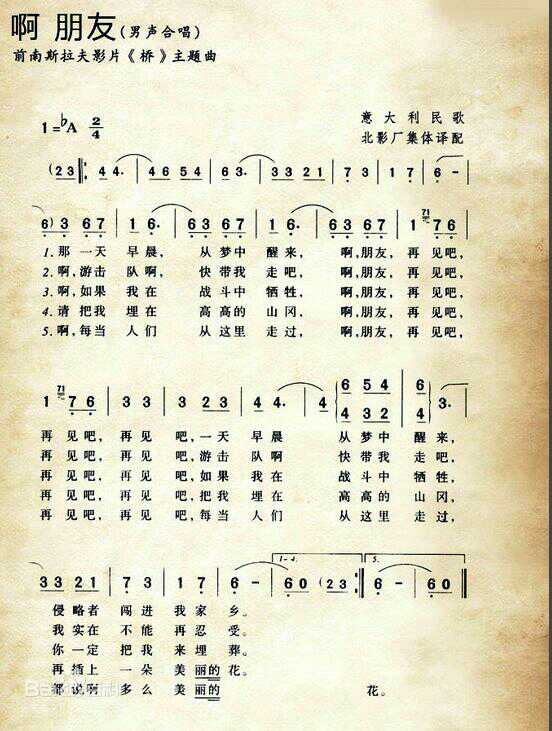 啊 朋友(男声合唱)
前南斯拉夫影片《桥》主题曲
意大利民歌
1=♭A 2/4
北影厂集体译配
(23 44. 4654 63. 3321 73 17 6 -
6)3 67 16. 63 67 16. 63 67 1 71 76
1.那一天 早晨, 从梦中 醒来, 啊,朋友,再见吧,
2.啊,游击 队啊, 快带我 走吧, 啊,朋友,再见吧,
3.啊,如果 我在 战斗中 牺牲, 啊,朋友,再见吧,
4.请把我 埋在 高高的 山冈, 啊,朋友,再见吧,
5.啊,每当 人们 从这里 走过, 啊,朋友,再见吧,
1 71 76 33 3 32 34 4. 4 6 54 64 3.
4 32 42
再见吧,再见 吧,一天 早晨 从梦中 醒来,
再见吧,再见 吧,游击 队啊 快带我 走吧,
再见吧,再见 吧,如果 我在 战斗中 牺牲,
再见吧,再见 吧,把我 埋在 高高的 山冈,
再见吧,再见 吧,每当 人们 从这里 走过,
1-4. 5.
33 21 73 17 6 - 60 (23 6 - 60
侵略者 闯进 我家 乡。
我实在 不能 再忍 受。
你一定 把我 来埋 葬。
再插上 一朵 美丽的 花。
都说啊 多么 美丽的 花。